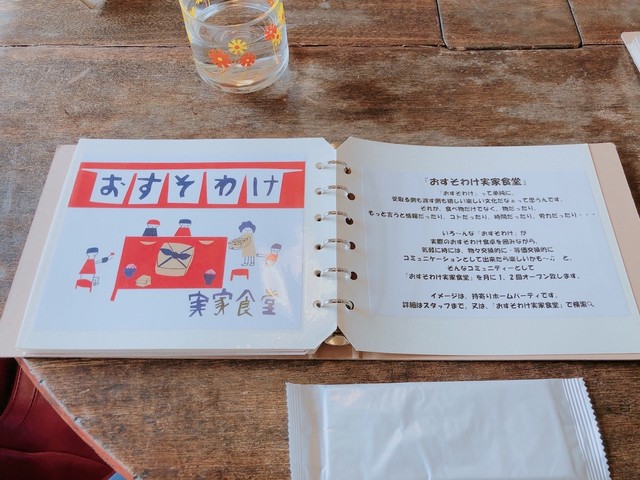 おすそわけ
実家食堂
『おすそわけ実家食堂』
「おすそわけ」って単純に、
受取る側も渡す側も嬉しい楽しい文化だなぁって思うんです。
それが、食べ物だけでなく、物だったり、
もっと言うと情報だったり、コトだったり、時間だったり、労力だったり・・・
いろーんな「おすそわけ」が
実際のおすそわけ食卓を囲みながら、
気軽に時には、物々交換的に・等価交換的に
コミュニケーションとして出来たら楽しいかも～♫ と、
そんなコミュニティーとして
「おすそわけ実家食堂」を月に1、2回オープン致します。
イメージは、持寄りホームパーティです。
詳細はスタッフまで、又は、「おすそわけ実家食堂」で検索🔍